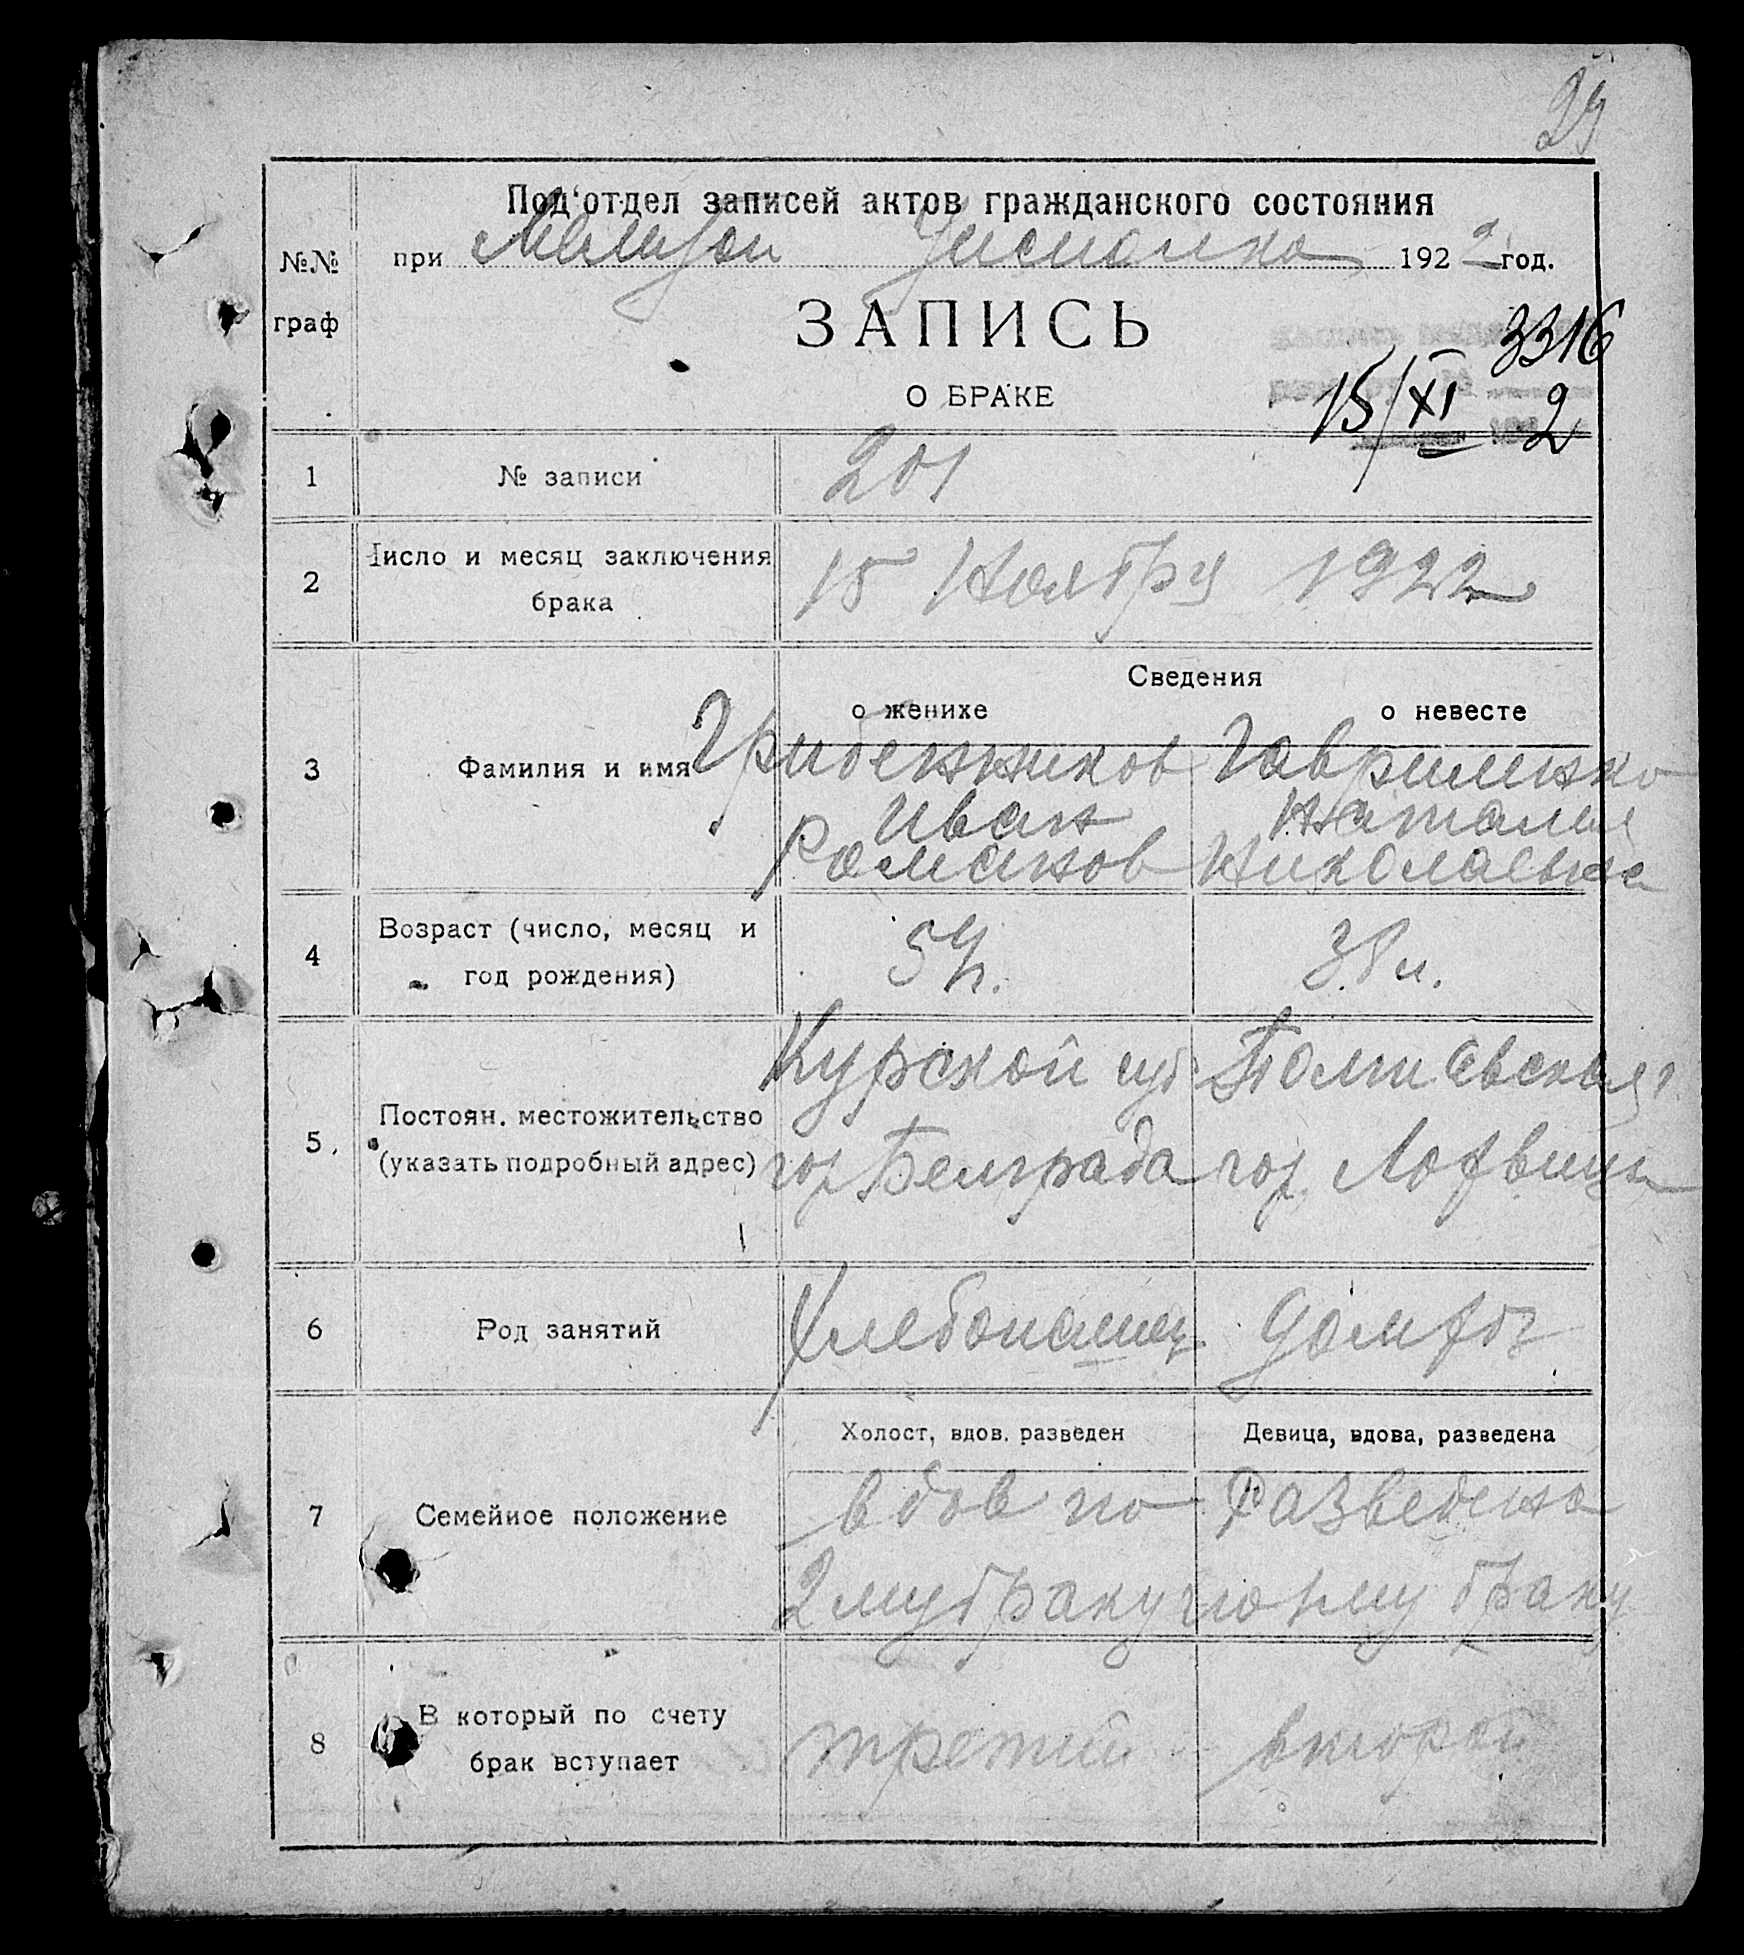 29
Под'отдел записей актов гражданского состояния
№№
граф
при Исполко 1922 год.
ЗАПИСЬ
О БРАКЕ
3316
15/XI 2
1 № записи 201
2 Число и месяц заключения
брака
15 Ноябру 1922
Сведения
о женихе о невесте
3 Фамилия и имя
Грибенников Гавриленко
Иван Наталия
Романов Николаевна
4 Возраст (число, месяц и
год рождения)
38 л.
5. Постоян. местожительство
(указать подробный адрес)
Курской губ Полтавская
гор Белграда гор. Лохвицы
6 Род занятий Хлебопашец
Холост, вдов. разведен Девица, вдова, разведена
7 Семейное положение
вдов по Разведена
2му браку по 1му браку
8 В который по счету
брак вступает
третий второй